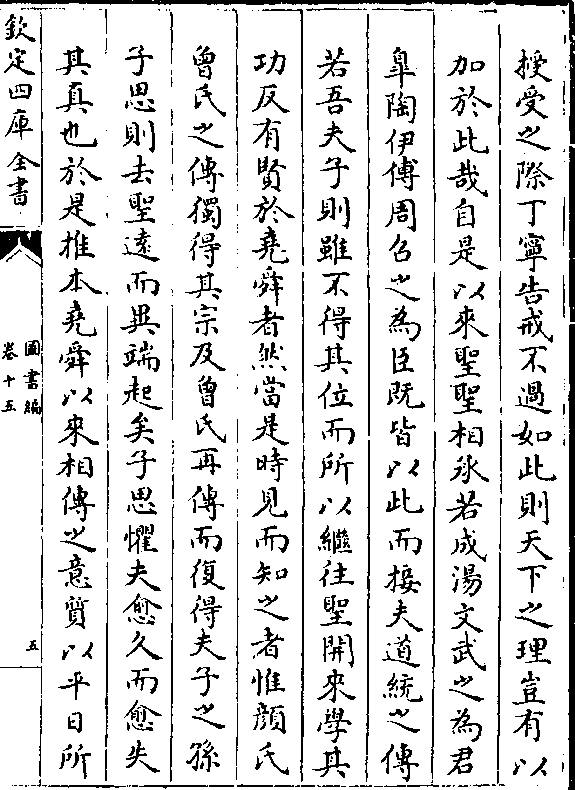 授受之際丁寧告戒不過如此則天下之理豈有以
加於此哉自是以來聖聖相承若成湯文武之為君
臯陶伊傅周召之為臣既皆以此而接夫道統之傳
若吾夫子則雖不得其位而所以繼往聖開來學其
功反有賢於堯舜者然當是時見而知之者惟顔氏
曾氏之傳獨得其宗及曾氏再傳而復得夫子之孫
子思則去聖逺而異端起矣子思懼夫愈久而愈失
其真也於是推本堯舜以來相傳之意質以平日所
欽定四庫全書
圖書編
卷十五
五